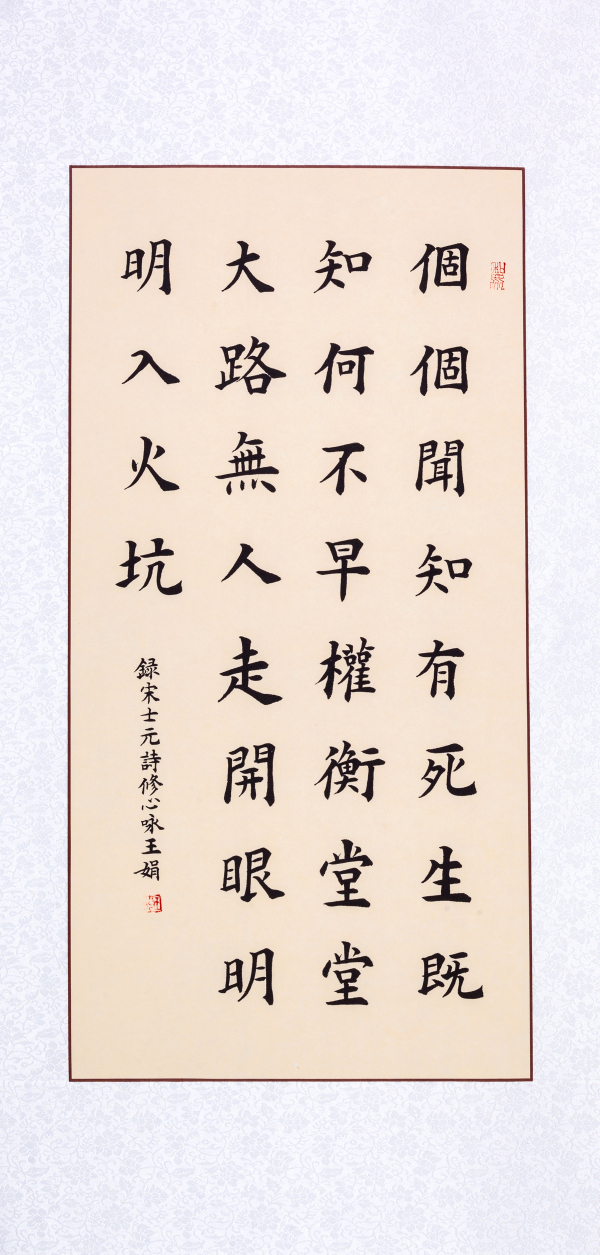 個個聞知有死生既
知何不早權衡堂堂
大路無人走開眼明
明入火坑
録宋士元詩修心咏王娟